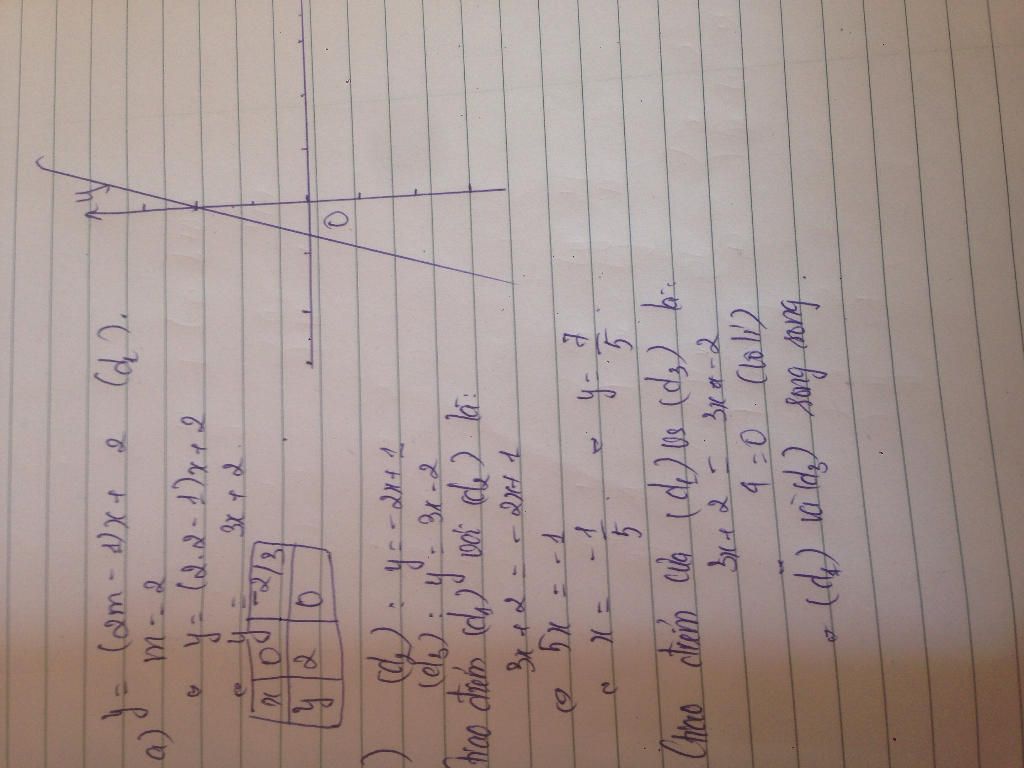 y = (2m - 1)x + 2 (d1).
a) m = 2
y = (2.2 - 1)x + 2
y = 3x + 2
x | 0 | -2/3
y | 2 | 0
y
O
) (d2) : y = -2x + 1
(d3) : y = 3x - 2
Giao điểm (d1) với (d2) là:
3x + 2 = -2x + 1
5x = -1
x = -1/5 y = 7/5.
Giao điểm của (d1) vs (d3) là:
3x + 2 = 3x - 2
4 = 0 (vô lí)
(d1) và (d3) song song.